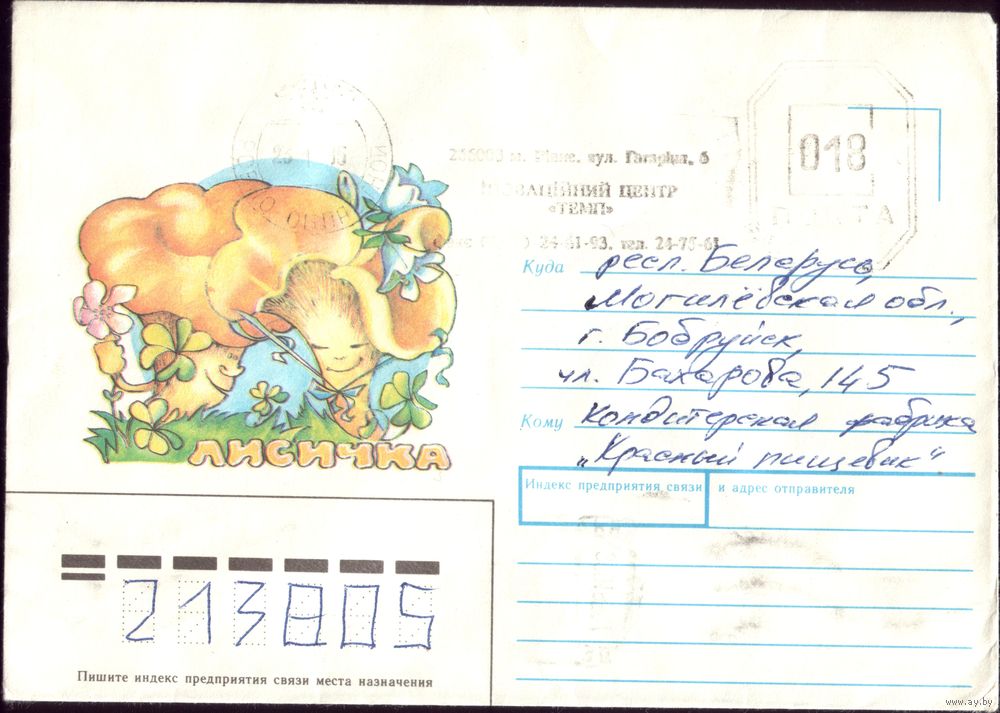 018
ПОШТА
вул. Гагаріна, 6
ЦЕНТР
«ТЕМП»
24-61-93, тел. 24-75-61
Куда респ. Беларусь,
Могилёвская обл.,
г. Бобруйск,
ул. Бахарова, 145
Кому Кондитерская фабрика
„Красный пищевик"
ЛИСИЧКА
Индекс предприятия связи и адрес отправителя
213805
Пишите индекс предприятия связи места назначения
www.ay.by